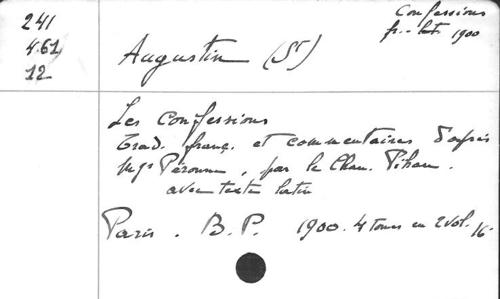 241
461
12
Confessions
fr.-lat. 1900
Augustin (St)
Les Confessions
Trad. franç. et commentaires d'après
Mgr Péronne, par le Chan. Pihan.
avec texte latin
Paris. B.P. 1900. 4 tomes en 2 vol. 16°